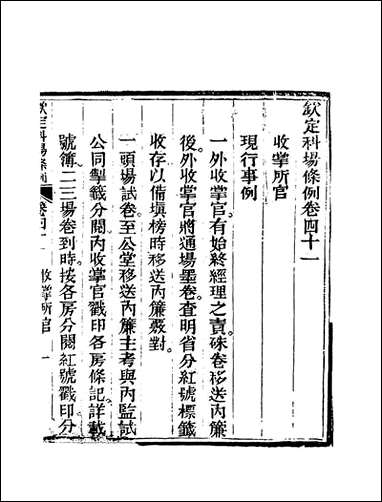 欽定科場條例卷四十一
收掌所官
現行事例
一外收掌官有始終經理之責硃卷移送內簾
後外收掌官將通場墨卷查明省分紅號標籤
收存以備填榜時移送內簾覈對
一頭場試卷至公堂移送內簾主考與內監試
公同掣籤分閱內收掌官戳印各房條記詳載
號簿二三場卷到時按各房分閱紅號戳印分
欽定科場條例
卷四十一
收掌所官
一